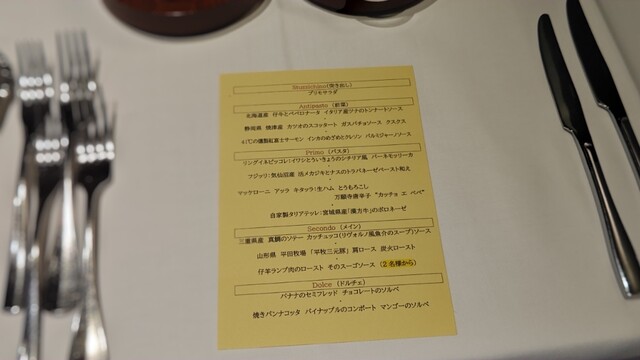 Stuzzichino(突き出し)
プリモサラダ
Antipasto (前菜)
北海道産 仔牛とペペロナータ イタリア産ツナのトンナートソース
静岡県 焼津産 カツオのスコッタート ガスパチョソース クスクス
41℃の燻製紅富士サーモン インカのめざめとクレソン パルミジャーノソース
Primo (パスタ)
リングイネピッコレ:イワシとういきょうのシチリア風 パーネモッリーカ
フジッリ:気仙沼産 活メカジキとナスのトラパネーゼペースト和え
マッケローニ アッラ キタッラ:生ハム とうもろこし
万願寺唐辛子 “カッチョ エ ペペ”
自家製タリアテッレ:宮城県産「漢方牛」のボロネーゼ
Secondo (メイン)
三重県産 真鯛のソテー カッチュッコ(リヴォルノ風魚介のスープ)ソース
山形県 平田牧場 「平牧三元豚」 肩ロース 炭火ロースト
仔羊ランプ肉のロースト そのスーゴソース (2名様から)
Dolce (ドルチェ)
バナナのセミフレッド チョコレートのソルベ
焼きパンナコッタ パイナップルのコンポート マンゴーのソルベ